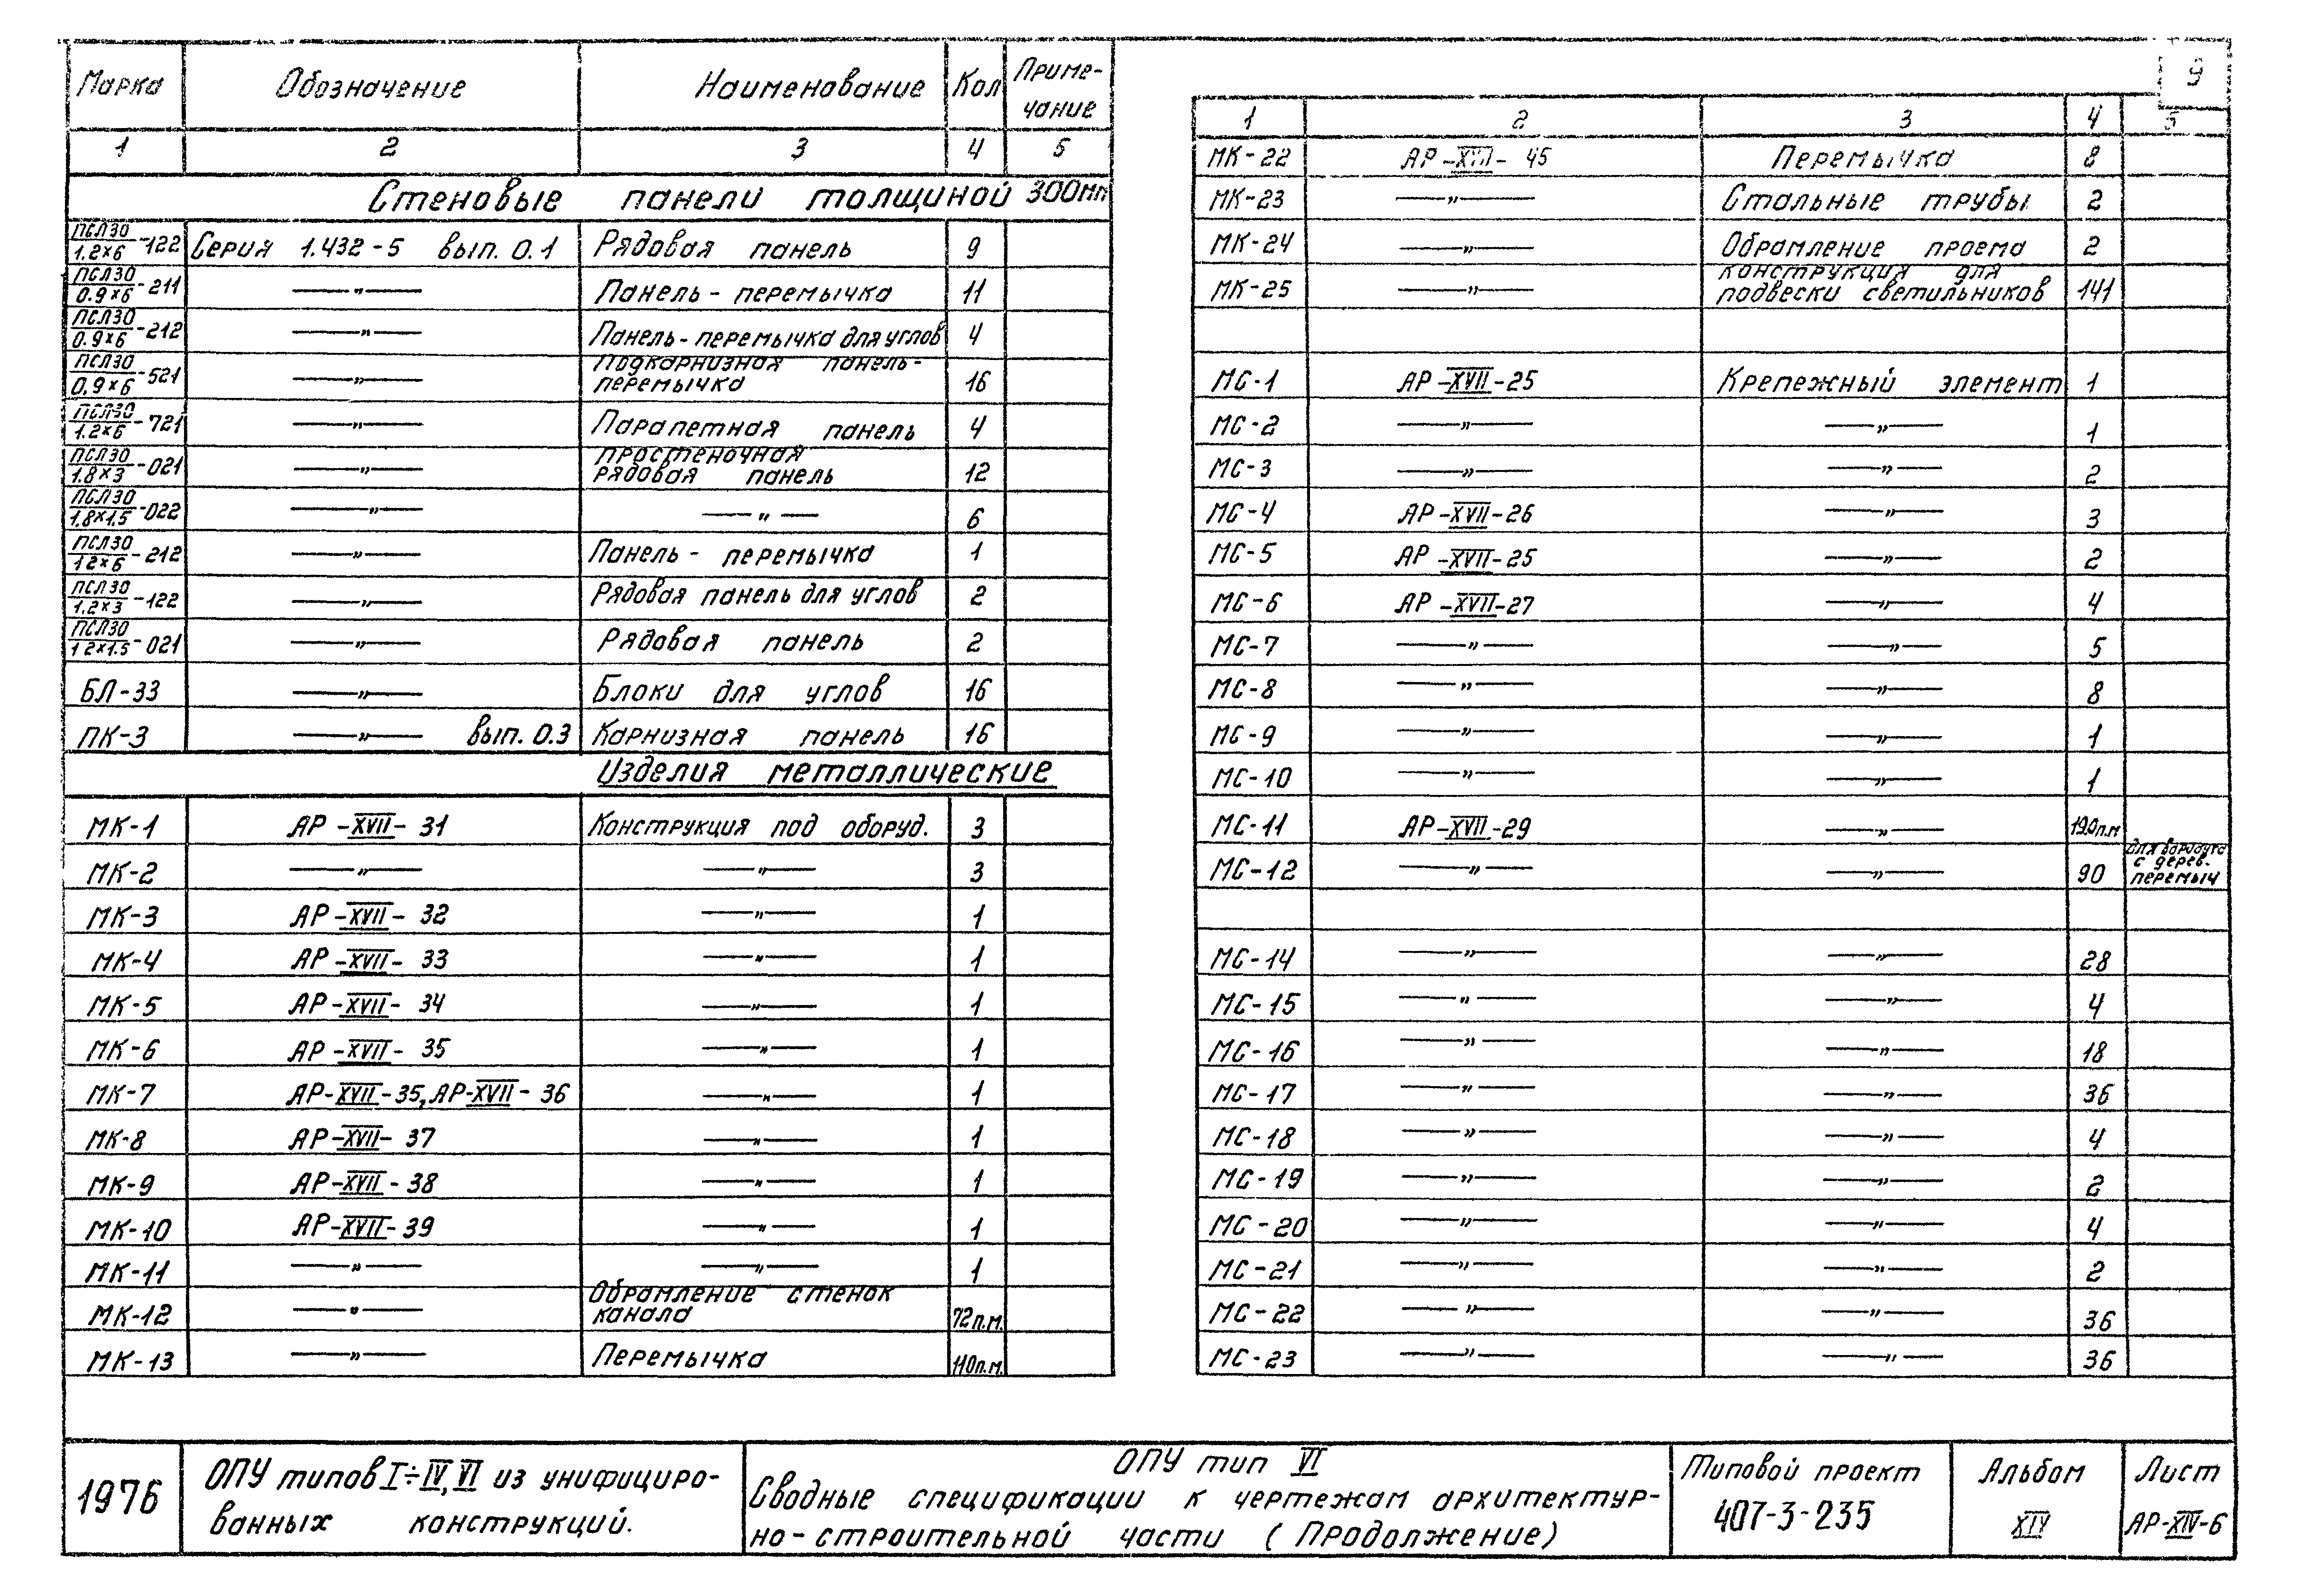 Марка Обозначение Наименование Кол Приме-чание
1 2 3 4 5
Стеновые панели толщиной 300мм
ПСЛ30/1.2×6-122 Серия 1.432-5 вып. 0.1 Рядовая панель 9
ПСЛ30/0.9×6-211 —"— Панель-перемычка 11
ПСЛ30/0.9×6-212 —"— Панель-перемычка для углов 4
ПСЛ30/0,9×6-521 —"— Подкарнизная панель-перемычка 16
ПСЛ30/1.2×6-721 —"— Парапетная панель 4
ПСЛ30/1.8×3-021 —"— Простеночная рядовая панель 12
ПСЛ30/1,8×1.5-022 —"— —"— 6
ПСЛ30/12×6-212 —"— Панель-перемычка 1
ПСЛ30/1.2×3-122 —"— Рядовая панель для углов 2
ПСЛ30/12×1.5-021 —"— Рядовая панель 2
БЛ-33 —"— Блоки для углов 16
ПК-3 —"— вып. 0.3 Карнизная панель 16
Изделия металлические
МК-1 АР-XVII-31 Конструкция под оборуд. 3
МК-2 —"— —"— 3
МК-3 АР-XVII-32 —"— 1
МК-4 АР-XVII-33 —"— 1
МК-5 АР-XVII-34 —"— 1
МК-6 АР-XVII-35 —"— 1
МК-7 АР-XVII-35, АР-XVII-36 —"— 1
МК-8 АР-XVII-37 —"— 1
МК-9 АР-XVII-38 —"— 1
МК-10 АР-XVII-39 —"— 1
МК-11 —"— —"— 1
МК-12 —"— Обрамление стенок канала 72п.м.
МК-13 —"— Перемычка 110п.м.
9
1 2 3 4 5
МК-22 АР-XVII-45 Перемычка 8
МК-23 —"— Стальные трубы 2
МК-24 —"— Обрамление проема 2
МК-25 —"— конструкция для подвески светильников 141
МС-1 АР-XVII-25 Крепежный элемент 1
МС-2 —"— —"— 1
МС-3 —"— —"— 2
МС-4 АР-XVII-26 —"— 3
МС-5 АР-XVII-25 —"— 2
МС-6 АР-XVII-27 —"— 4
МС-7 —"— —"— 5
МС-8 —"— —"— 8
МС-9 —"— —"— 1
МС-10 —"— —"— 1
МС-11 АР-XVII-29 —"— 190п.м
МС-12 —"— —"— 90 для варианта с дерев. перемыч
МС-14 —"— —"— 28
МС-15 —"— —"— 4
МС-16 —"— —"— 18
МС-17 —"— —"— 36
МС-18 —"— —"— 4
МС-19 —"— —"— 2
МС-20 —"— —"— 4
МС-21 —"— —"— 2
МС-22 —"— —"— 36
МС-23 —"— —"— 36
1976
ОПУ типов I÷IV, VI из унифициро-
ванных конструкций.
ОПУ тип VI
Сводные спецификации к чертежам архитектур-
но-строительной части (Продолжение)
Типовой проект
407-3-235
Альбом
XIV
Лист
АР-XIV-6